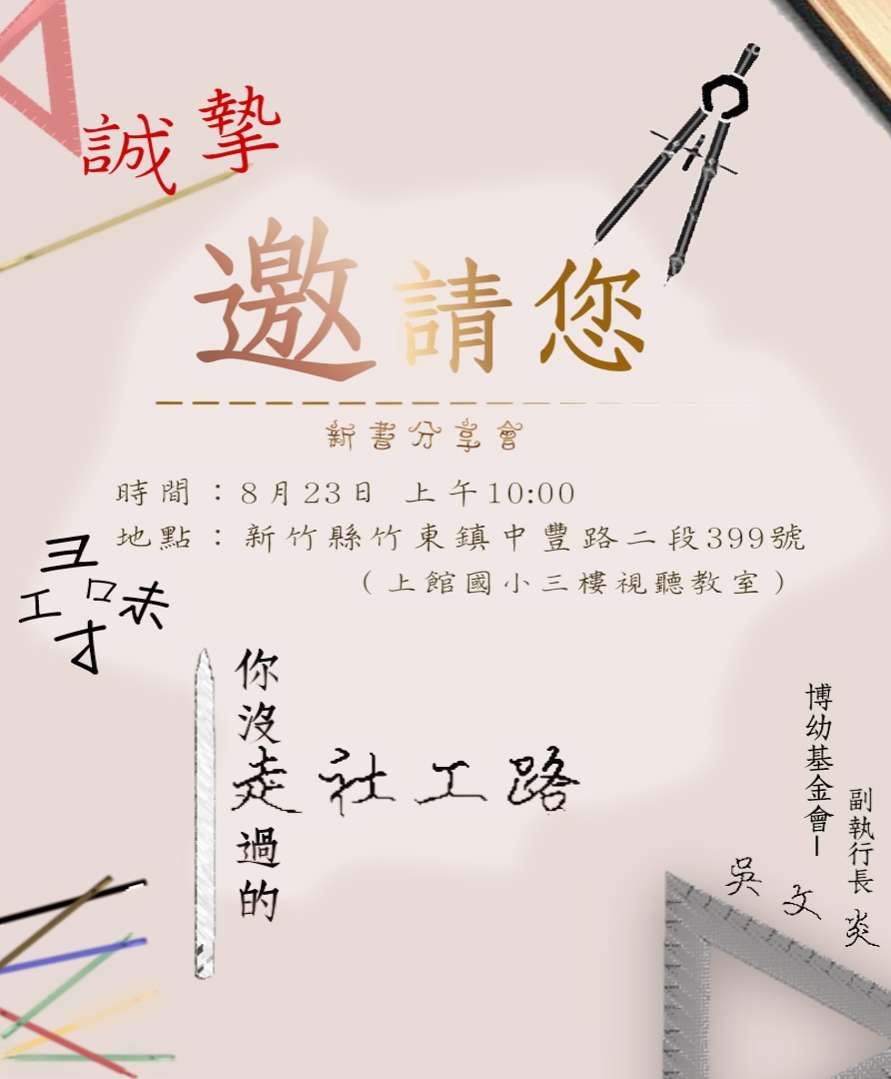 誠摯
邀請您
新書分享會
時間：8月23日 上午10:00
地點：新竹縣竹東鎮中豐路二段399號
（上館國小三樓視聽教室）
尋味
你沒走過的
走社工路
博幼基金會-
副執行長
吳文炎